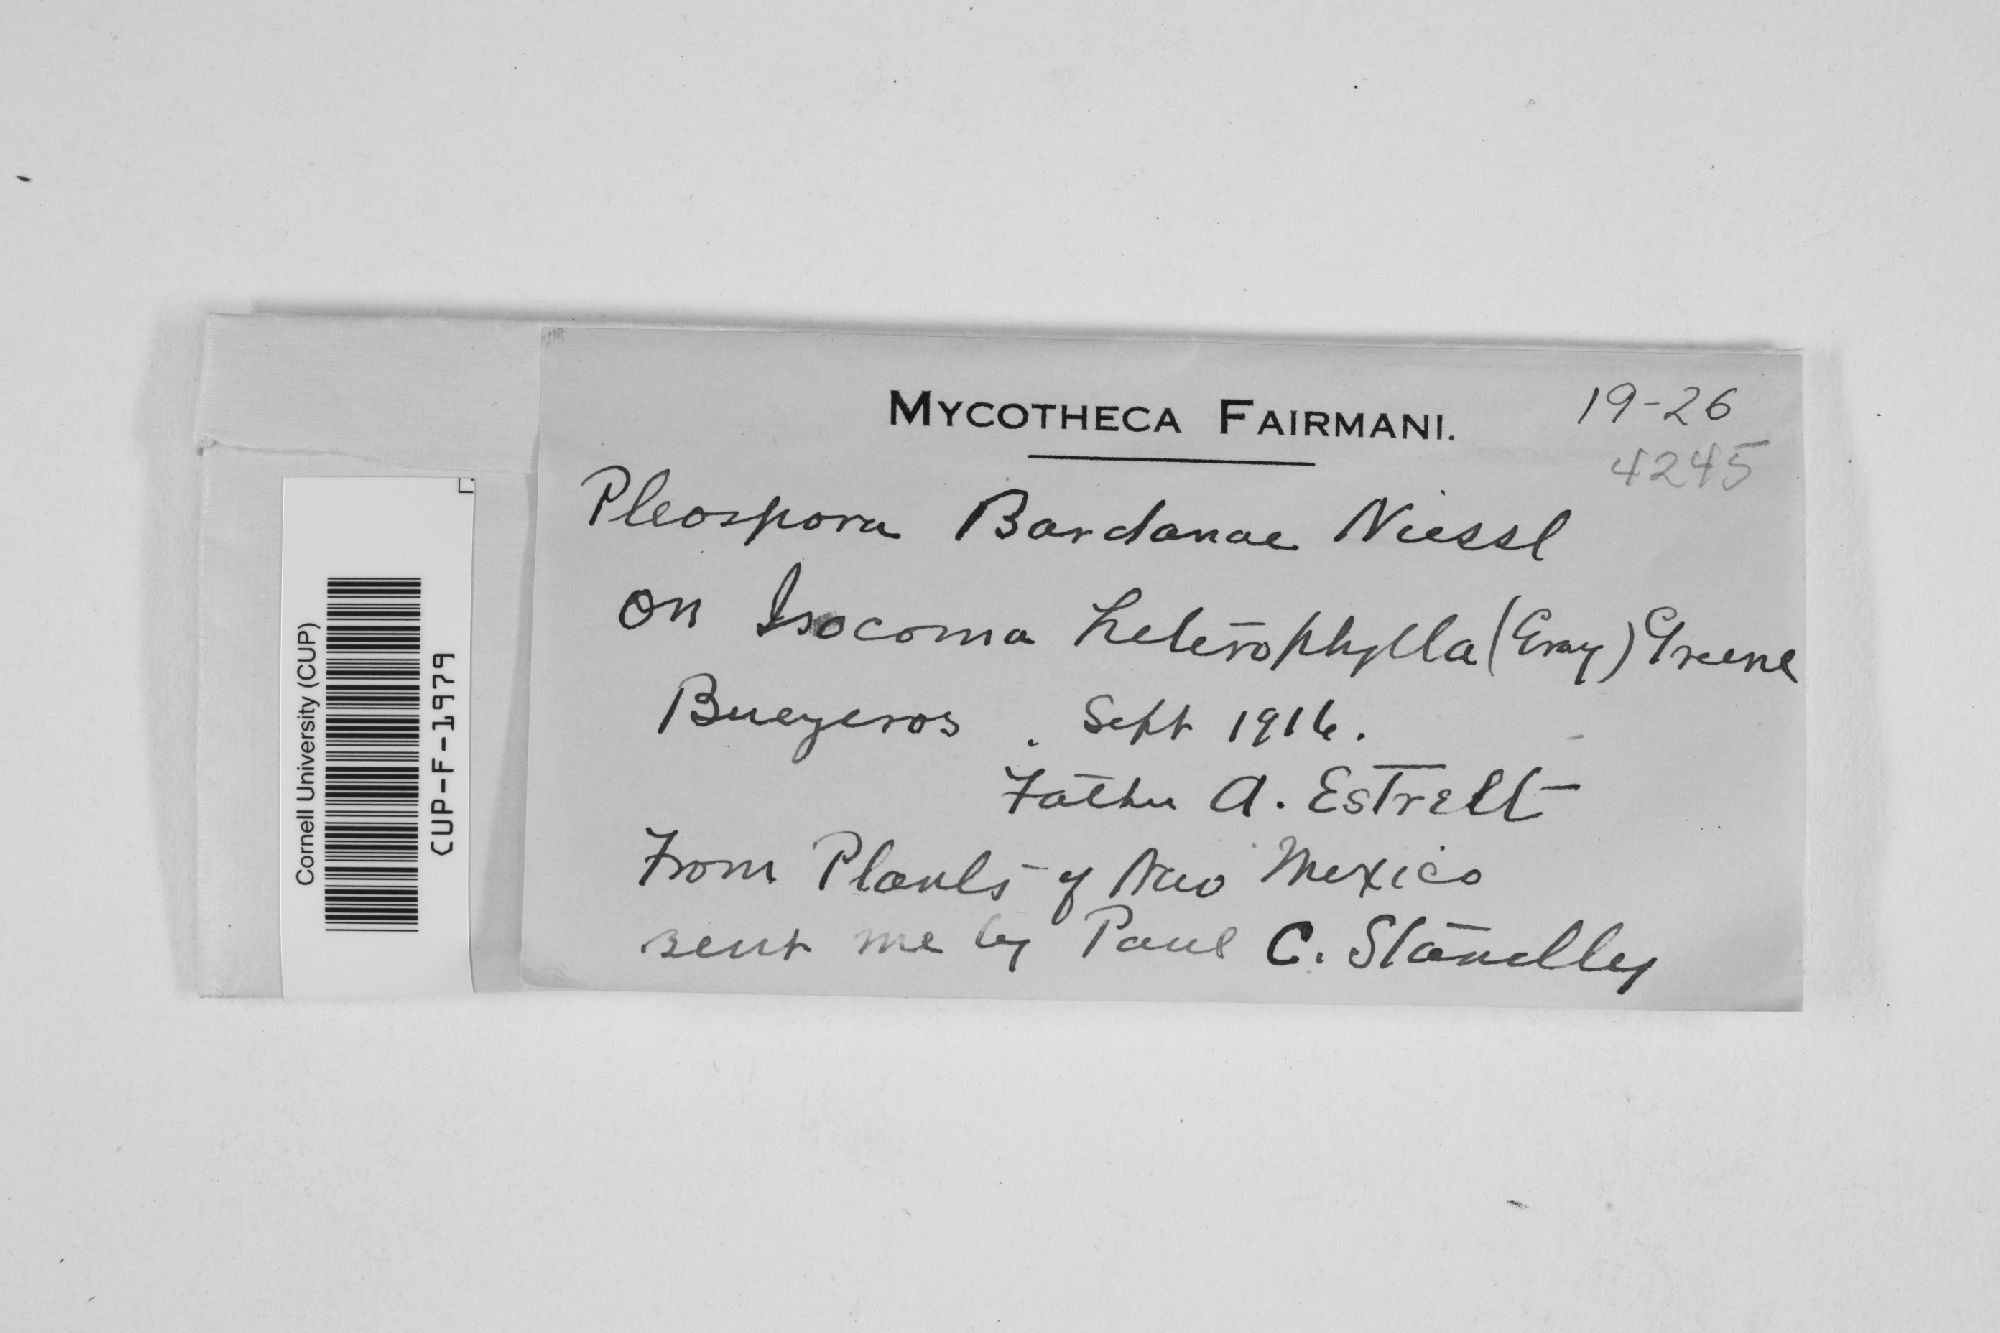 MYCOTHECA FAIRMANI.
19-26
4245
Pleospora Bardanae Niessl
on Isocoma heterophylla (Gray) Greene
Bueyeros. Sept 1916.
Father A. Estrelt
From Plants of New Mexico
sent me by Paul C. Standley
Cornell University (CUP)
CUP-F-1979